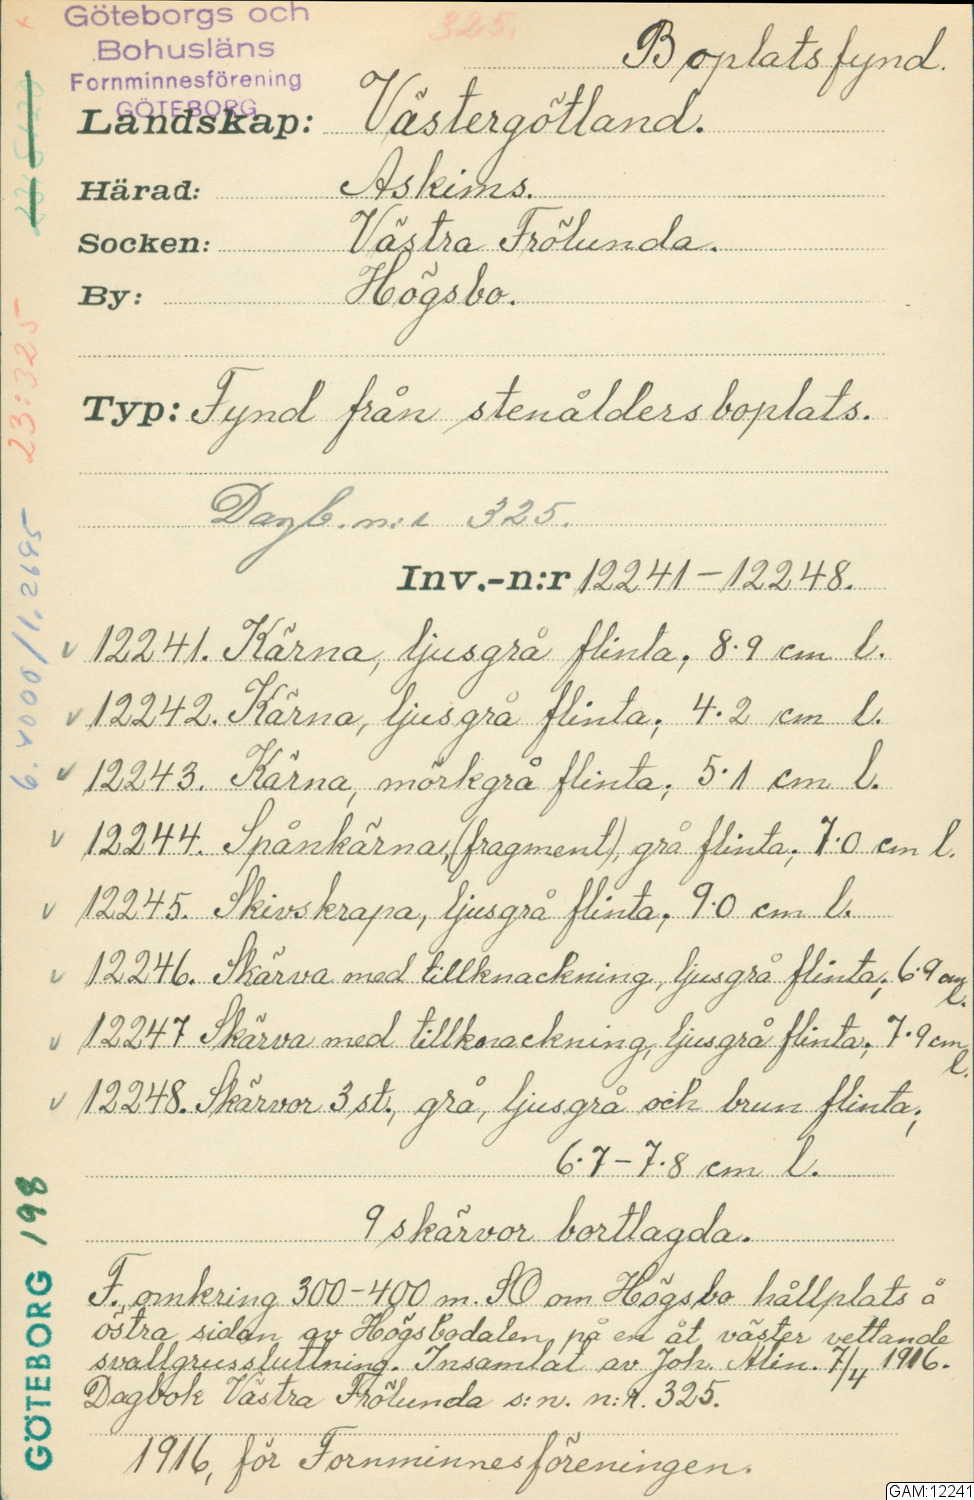 Göteborgs och
Bohusläns
Fornminnesförening
GÖTEBORG
325.
Boplatsfynd.
Landskap: Västergötland.
Härad: Askims.
Socken: Västra Frölunda.
By: Högsbo.
Typ: Fynd från stenåldersboplats.
Dagb. n:r 325.
Inv.-n:r 12241-12248.
v 12241. Kärna, ljusgrå flinta; 8.9 cm l.
v 12242. Kärna, ljusgrå flinta; 4.2 cm l.
v 12243. Kärna, mörkgrå flinta; 5.1 cm l.
v 12244. Spånkärna, (fragment), grå flinta; 7.0 cm l.
v 12245. Skivskrapa, ljusgrå flinta; 9.0 cm l.
v 12246. Skärva med tillknackning, ljusgrå flinta; 6.9 cm l.
v 12247 Skärva med tillknackning, ljusgrå flinta; 7.9 cm l.
v 12248. Skärvor 3 st., grå, ljusgrå och brun flinta;
6.7-7.8 cm l.
9 skärvor bortlagda.
F. omkring 300-400 m. SO om Högsbo hållplats å
östra sidan av Högsbodalen, på en åt väster vettande
svallgrussluttning. Insamlat av Joh. Alin. 7/4 1916.
Dagbok Västra Frölunda s:n. n:r. 325.
1916, för Fornminnesföreningen.
23:325
6.4000/1.2695
GÖTEBORG 198
GAM:12241